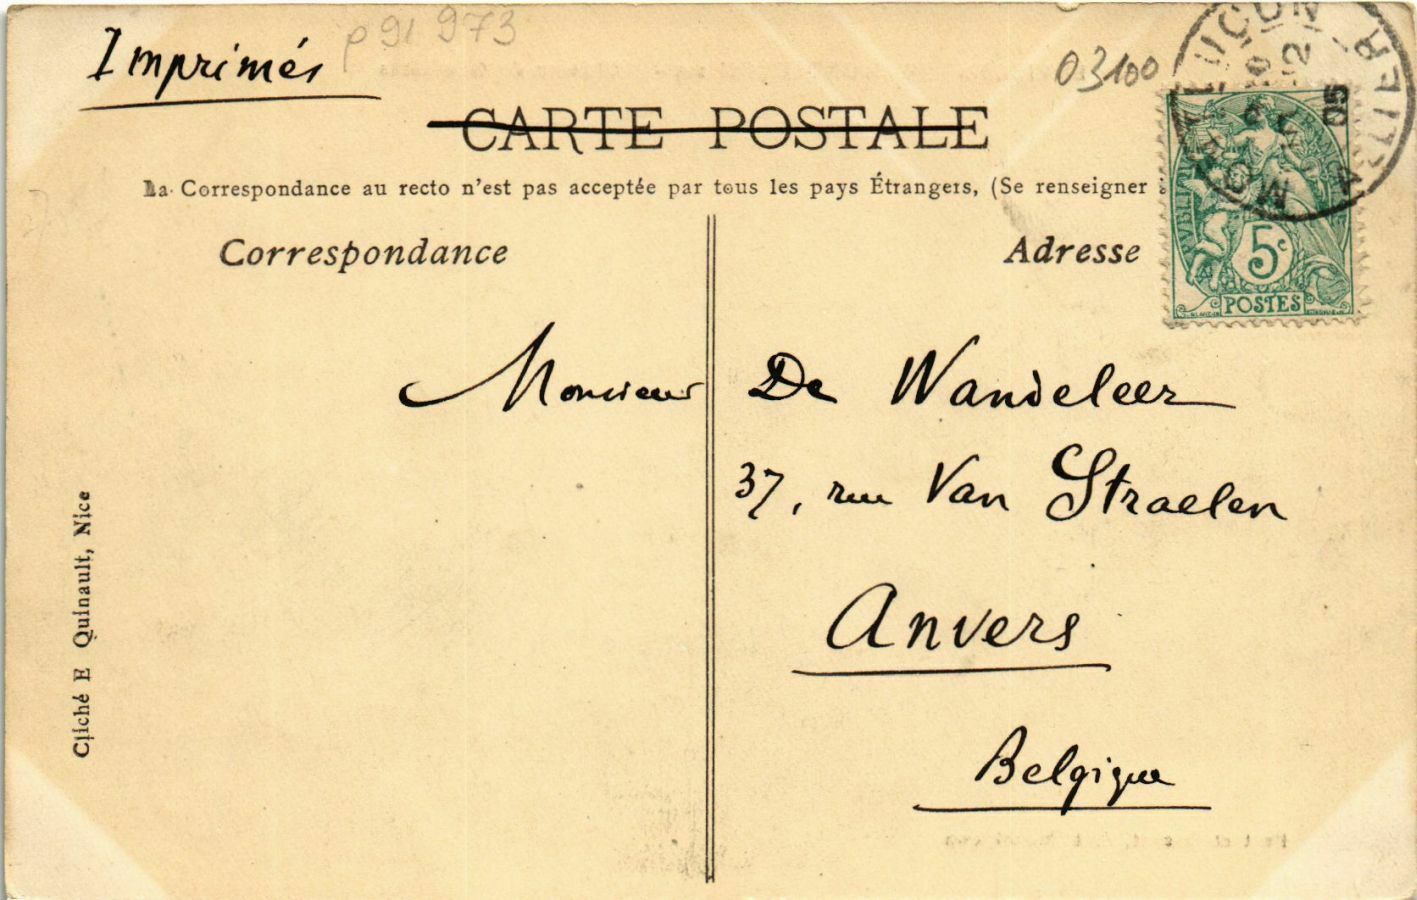 Imprimés
p91 973
03100
CARTE POSTALE
La Correspondance au recto n'est pas acceptée par tous les pays Étrangers, (Se renseigner
Correspondance
Adresse
5c
POSTES
05
Monsieur De Wandeleer
37, rue Van Straelen
Anvers
Belgique
Cliché E Quinault, Nice